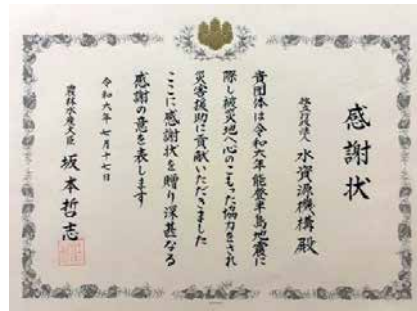 感謝状
独立行政法人 水資源機構 殿
貴団体は令和六年能登半島地震に
際し被災地へ心のこもった協力をされ
災害援助に貢献いただきました
ここに感謝状を贈り深甚なる
感謝の意を表します
令和六年 七月十七日
農林水産大臣 坂本哲志